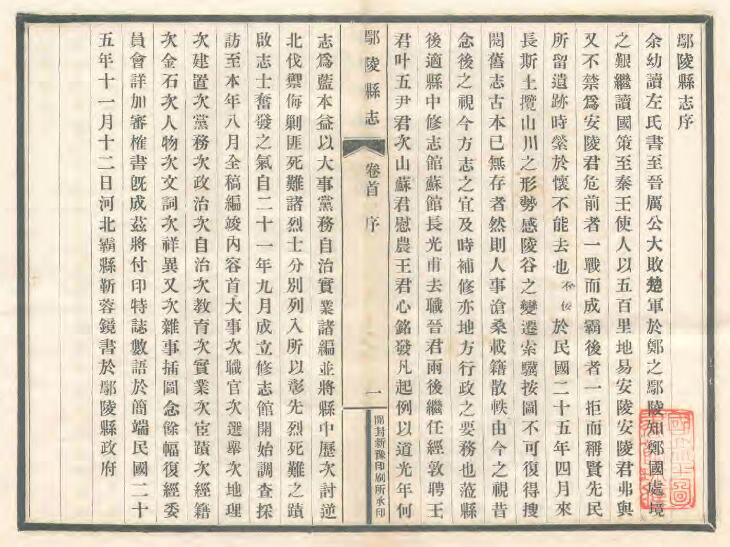 鄢陵縣志序
余幼讀左氏書至晉厲公大敗楚軍於鄭之鄢陵知鄭國處境
之艱繼讀國策至秦王使人以五百里地易安陵安陵君弗與
又不禁為安陵君危前者一戰而成霸後者一拒而稱賢先民
所留遺跡時縈於懷不能去也不佞於民國二十五年四月來
長斯土攬山川之形勢感陵谷之變遷索驥按圖不可復得搜
閱舊志古本已無存者然則人事滄桑載籍散軼由今之視昔
念後之視今方志之宜及時補修亦地方行政之要務也蒞縣
後適縣中修志館蘇館長光甫去職晉君雨後繼任經敦聘王
君叶五尹君次山蘇君慰農王君心銘發凡起例以道光年何
鄢陵縣志
卷首 序
一
開封新豫印刷所承印
志為藍本益以大事黨務自治實業諸編並將縣中歷次討逆
北伐禦侮剿匪死難諸烈士分別列入所以彰先烈死難之蹟
啟志士奮發之氣自二十一年九月成立修志館開始調查採
訪至本年八月全稿編竣內容首大事次職官次選舉次地理
次建置次黨務次政治次自治次教育次實業次宦蹟次經籍
次金石次人物次文詞次祥異又次雜事插圖念餘幅復經委
員會詳加審榷書既成茲將付印特誌數語於簡端民國二十
五年十一月十二日河北霸縣靳蓉鏡書於鄢陵縣政府